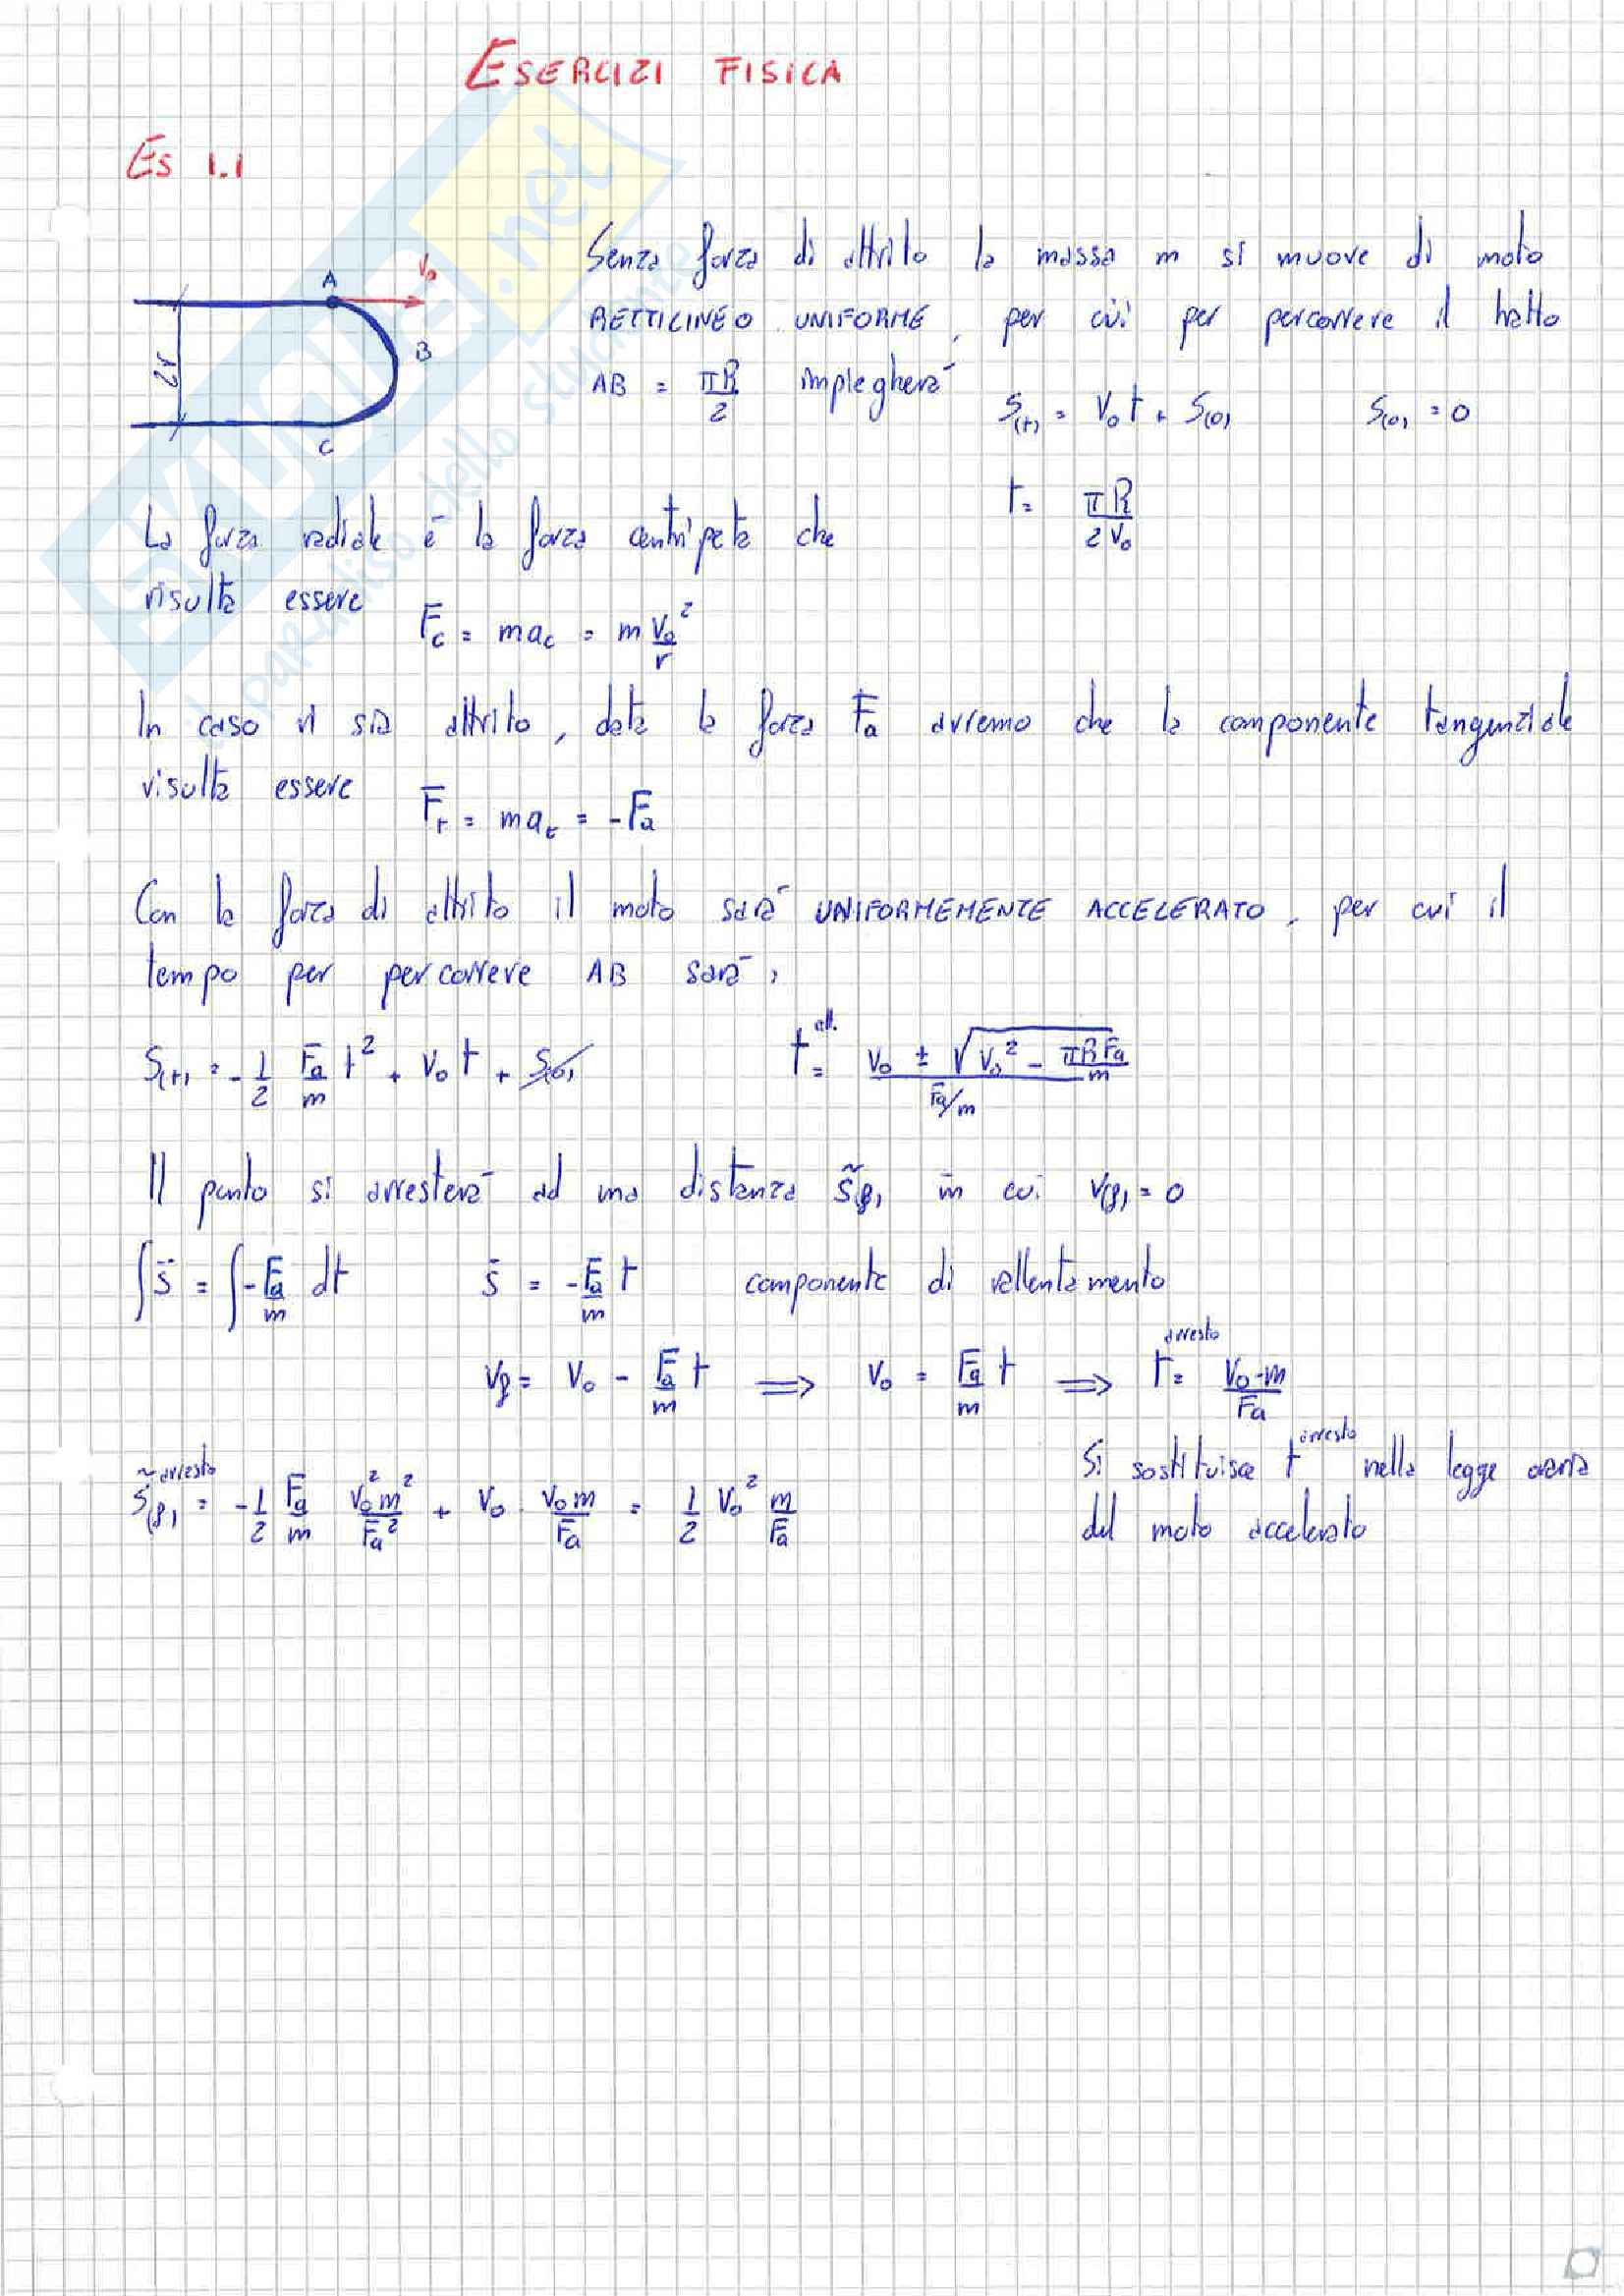 ESERCIZI FISICA
ES 1.1
A
V₀
B
2r
C
Senza forza di attrito la massa m si muove di moto
RETTILINEO UNIFORME, per cui per percorrere il tratto
AB = πR/2 impiegherà
S(t) = V₀t + S(0)   S(0) = 0
t = πR/2V₀
La forza radiale è la forza centripeta che
risulta essere
F_c = ma_c = m V₀²/r
In caso vi sia attrito, data la forza F_a avremo che la componente tangenziale
risulta essere
F_t = ma_t = -F_a
Con la forza di attrito il moto sarà UNIFORMEMENTE ACCELERATO, per cui il
tempo per percorrere AB sarà,
S(t) = -1/2 F_a/m t² + V₀t + S(0)
t^att. = (V₀ ± √(V₀² - πRF_a/m)) / (F_a/m)
Il punto si arresterà ad una distanza s̃(f) in cui V(f) = 0
∫s̈ = ∫-F_a/m dt   ṡ = -F_a/m t   componente di rallentamento
V_f = V₀ - F_a/m t ⟹ V₀ = F_a/m t ⟹ t^arresto = V₀·m/F_a
Si sostituisce t^arresto nella legge oraria
del moto accelerato
s̃(f)^arresto = -1/2 F_a/m V₀²m²/F_a² + V₀ · V₀m/F_a = 1/2 V₀² m/F_a
SKUOLA.net
il paradiso dello studente